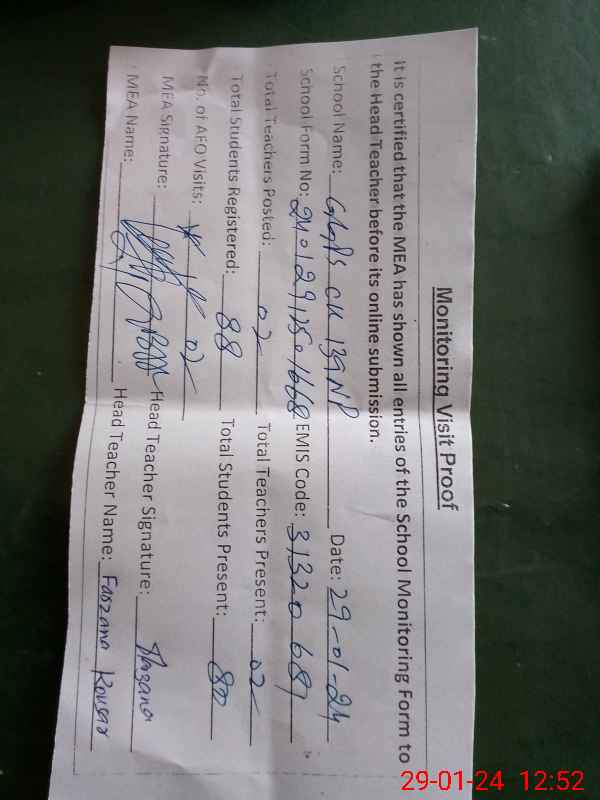 Monitoring Visit Proof
It is certified that the MEA has shown all entries of the School Monitoring Form to
the Head Teacher before its online submission.
School Name: GGPS CH 139NP Date: 29-01-24
School Form No: EMIS Code: 31320689
Total Teachers Posted: 02 Total Teachers Present: 02
Total Students Registered: 88 Total Students Present: 80
No. of AEO Visits: 02
MEA Signature: Head Teacher Signature:
MEA Name: Head Teacher Name: Farzana Kousar
29-01-24 12:52